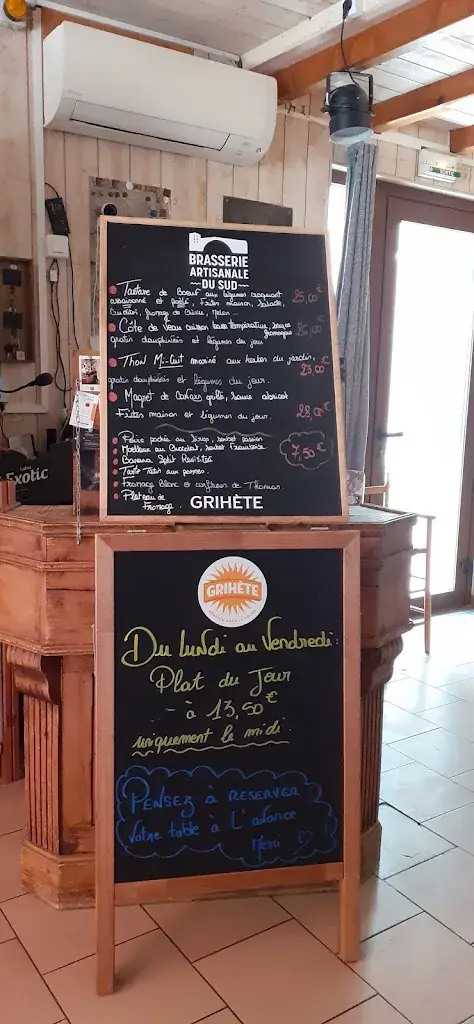 BRASSERIE
ARTISANALE
DU SUD
Tartare de Boeuf aux légumes croquant
assaisonné et poêlé, frites maison, salade,
25,00
Côte de Veau cuisson basse température, sauce
fromagère
gratin dauphinois et légumes du jour
Thon Mi-Cuit mariné aux herbes du jardin,
23,00€
gratin dauphinois et légumes du jour.
Magret de Canard grillé, sauce abricot
Frites maison et légumes du jour. 28,00€
Poire pochée au sirop, sorbet passion
Moelleux au Chocolat, sorbet framboise
7,50€
Banana Split Revisitée
Tarte Tatin aux pommes.
Fromage Blanc et confiture de Thomas.
Plateau de
Fromage.
GRIHÈTE
Exotic
GRIHÈTE
Du lundi au Vendredi:
Plat du Jour
à 13,50€
uniquement le midi.
PENSEZ à RESERVER
Votre table à L'avance
Merci